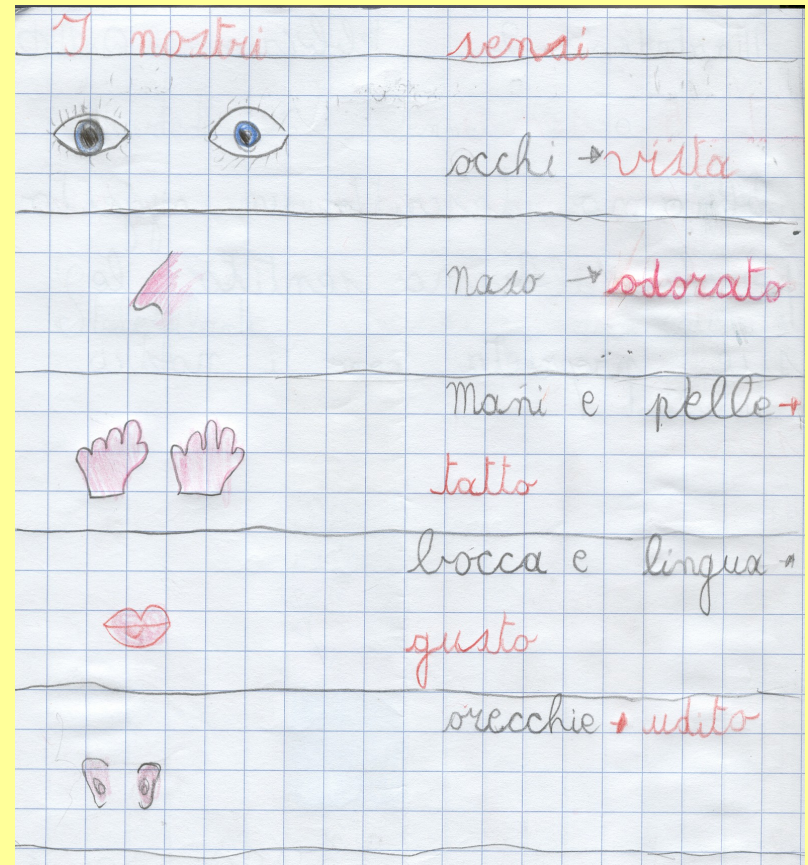 I nostri sensi
occhi → vista
naso → odorato
Mani e pelle →
tatto
bocca e lingua →
gusto
orecchie → udito